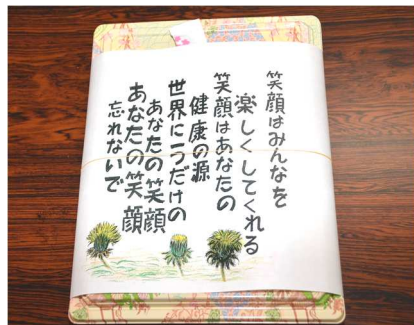 笑顔はみんなを
楽しくしてくれる
笑顔はあなたの
健康の源
世界に一つだけの
あなたの笑顔
あなたの笑顔
忘れないで